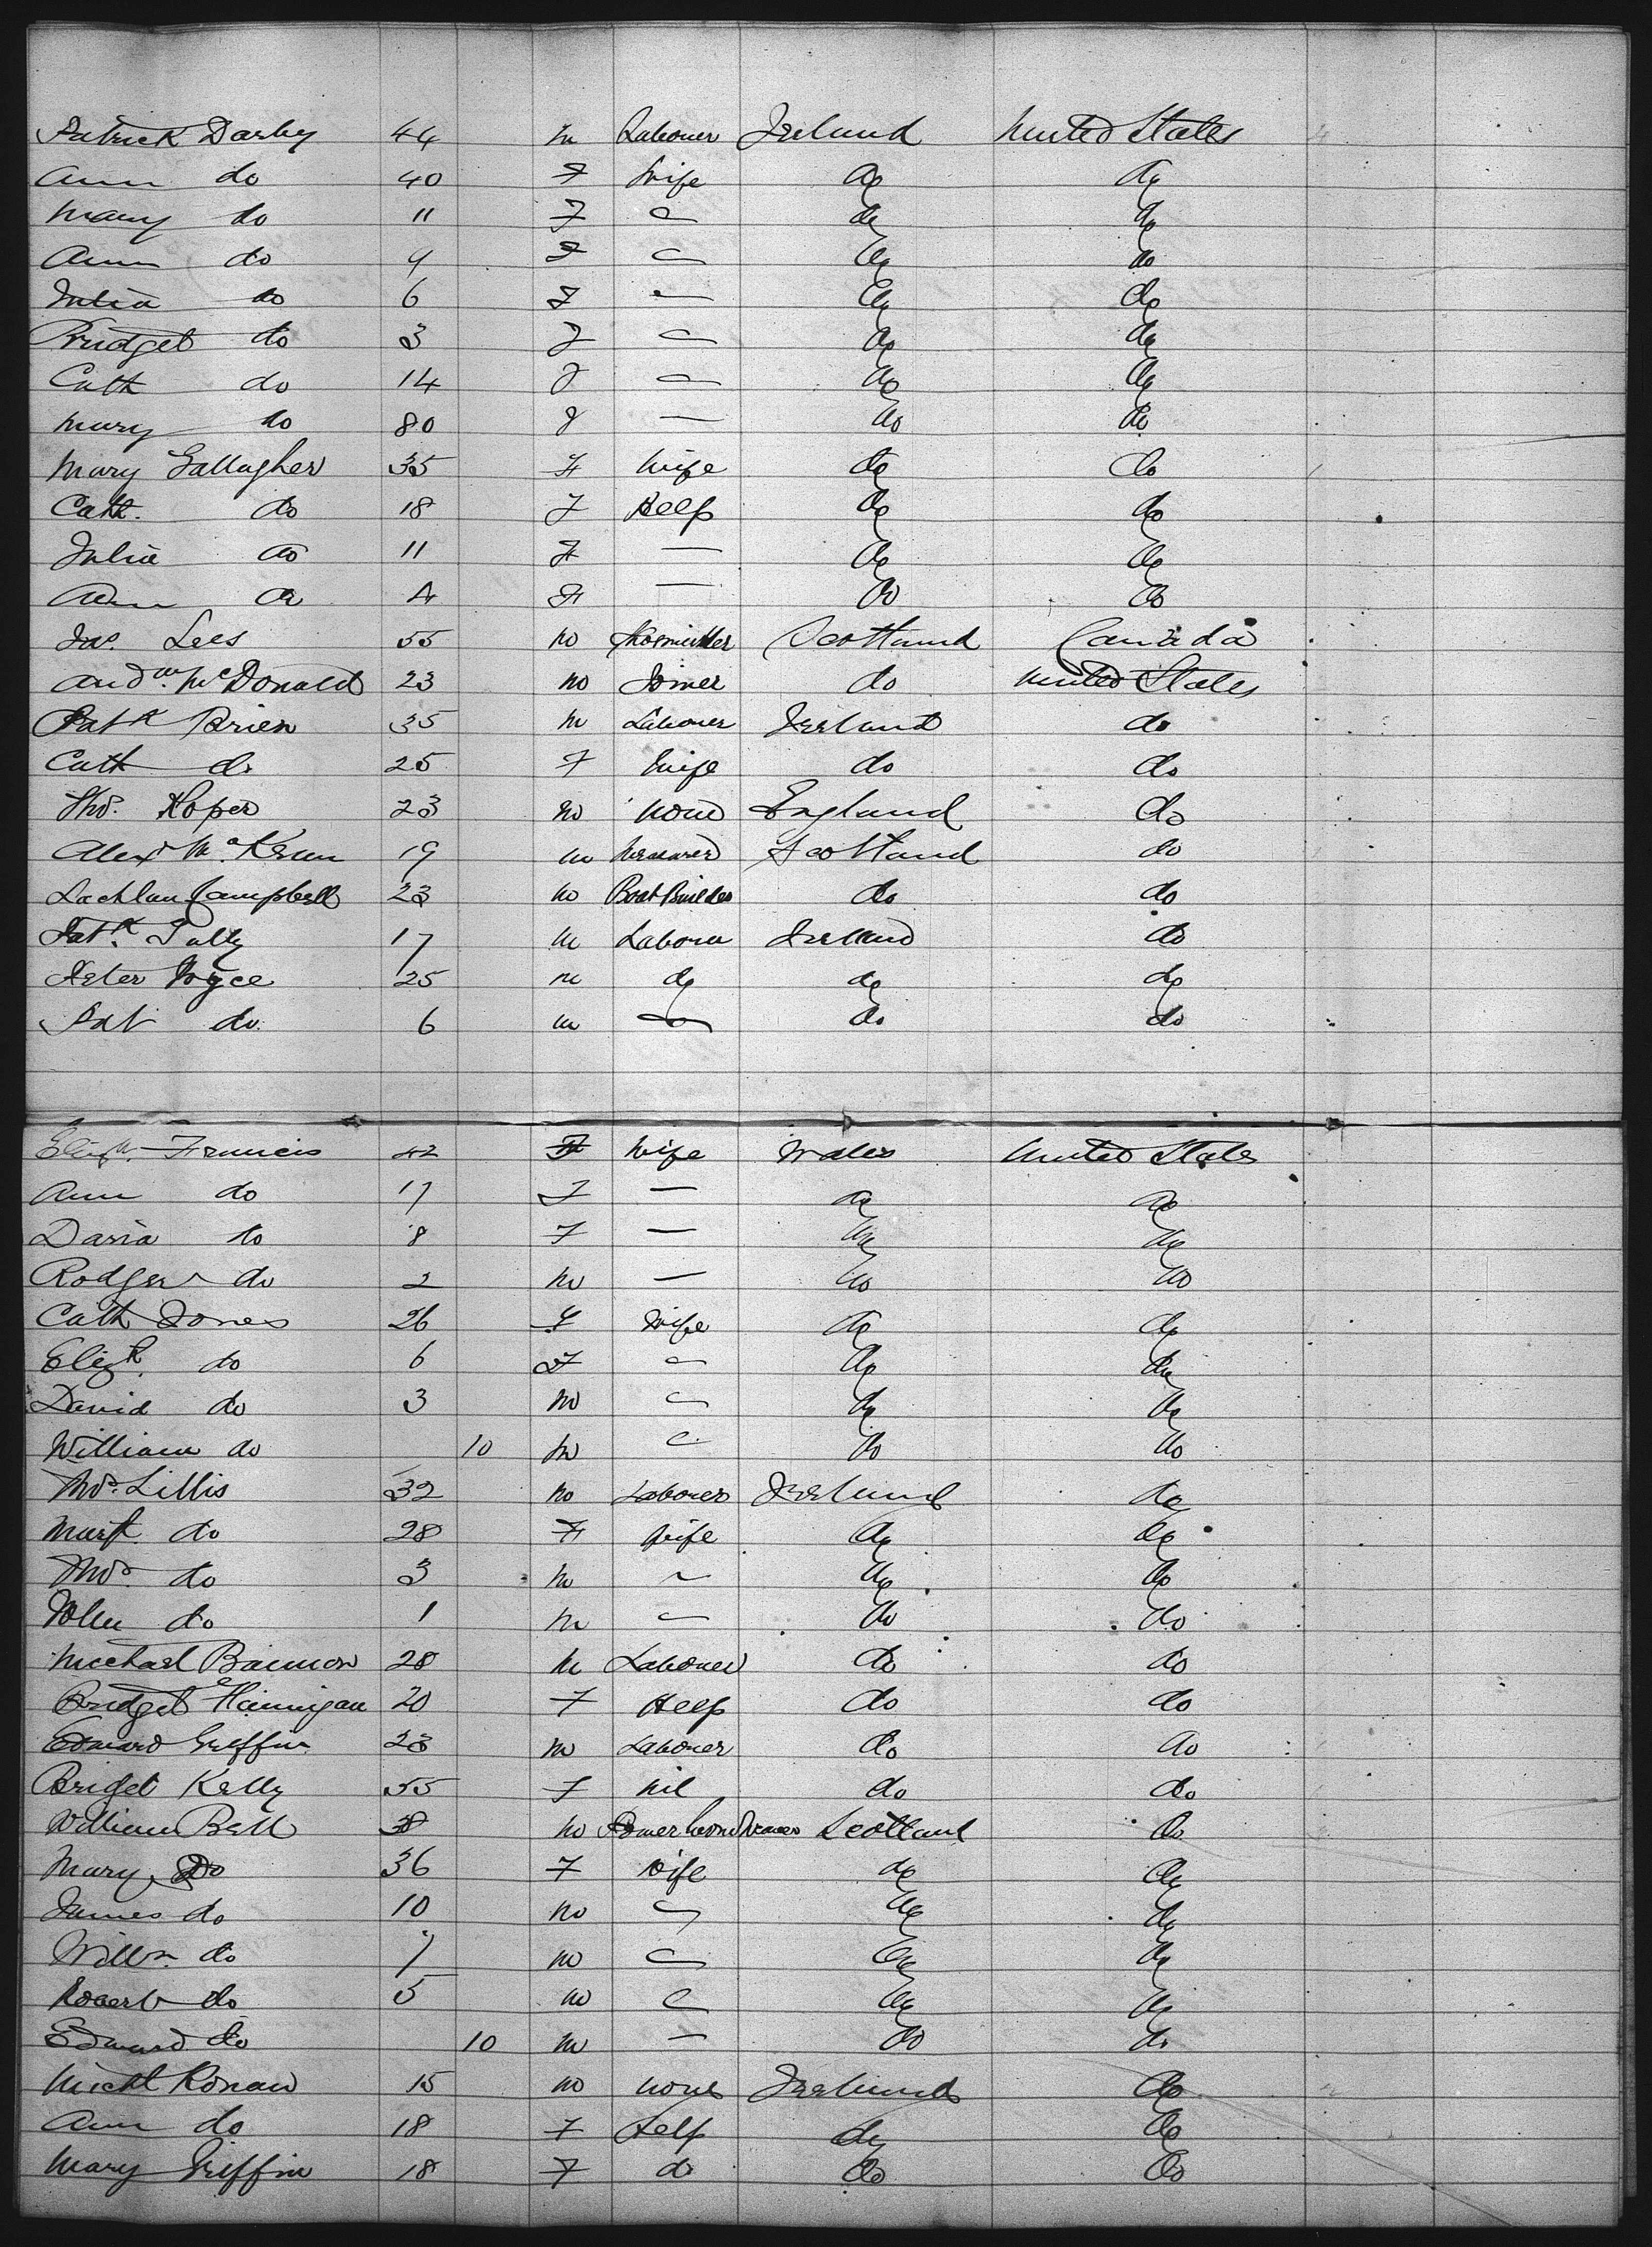 Patrick Darby 44 m Labourer Ireland United States
Ann do 40 F Wife do do
Mary do 11 F — do do
Ann do 9 F — do do
Julia do 6 F — do do
Bridget do 3 F — do do
Cath do 14 F — do do
Mary do 80 F — do do
Mary Gallagher 35 F Wife do do
Cath. do 18 F Help do do
Julia do 11 F — do do
Ann do 4 F — do do
Jas. Lees 55 m Scotland Canada
Andw. McDonald 23 m Joiner do United States
Patk Brien 35 m Labourer Ireland do
Cath do 25 F Wife do do
Thos. Roper 23 m None England do
Alexr 19 m Scotland do
Lachlan Campbell 23 m Boat Builder do do
Patk. Tully 17 m Labourer Ireland do
Peter Joyce 25 m do do do
Pat do 6 m — do do
Elizth. Francis 42 F Wife Wales United States
Ann do 17 F — do do
Daria do 8 F — do do
Rodger do 2 m — do do
Cath Jones 26 F Wife do do
Elizh. do 6 F — do do
David do 3 m — do do
William do 10 m — do do
Thos. Lillis 32 m Labourer Ireland do
Margt. do 28 F Wife do do
Thos. do 3 m — do do
John do 1 m — do do
Michael Bannon 28 m Labourer do do
Bridget Hannigan 20 F Help do do
Edward Griffin 23 m Labourer do do
Bridget Kelly 55 F nil do do
William Bell 38 m Power Loom Scotland do
Mary Do 36 F Wife do do
James do 10 m — do do
Willm. do 7 m — do do
Robert do 5 m — do do
Edward do 10 m — do do
Michl Ronan 15 m None Ireland do
Ann do 18 F Help do do
Mary Griffin 18 F do do do